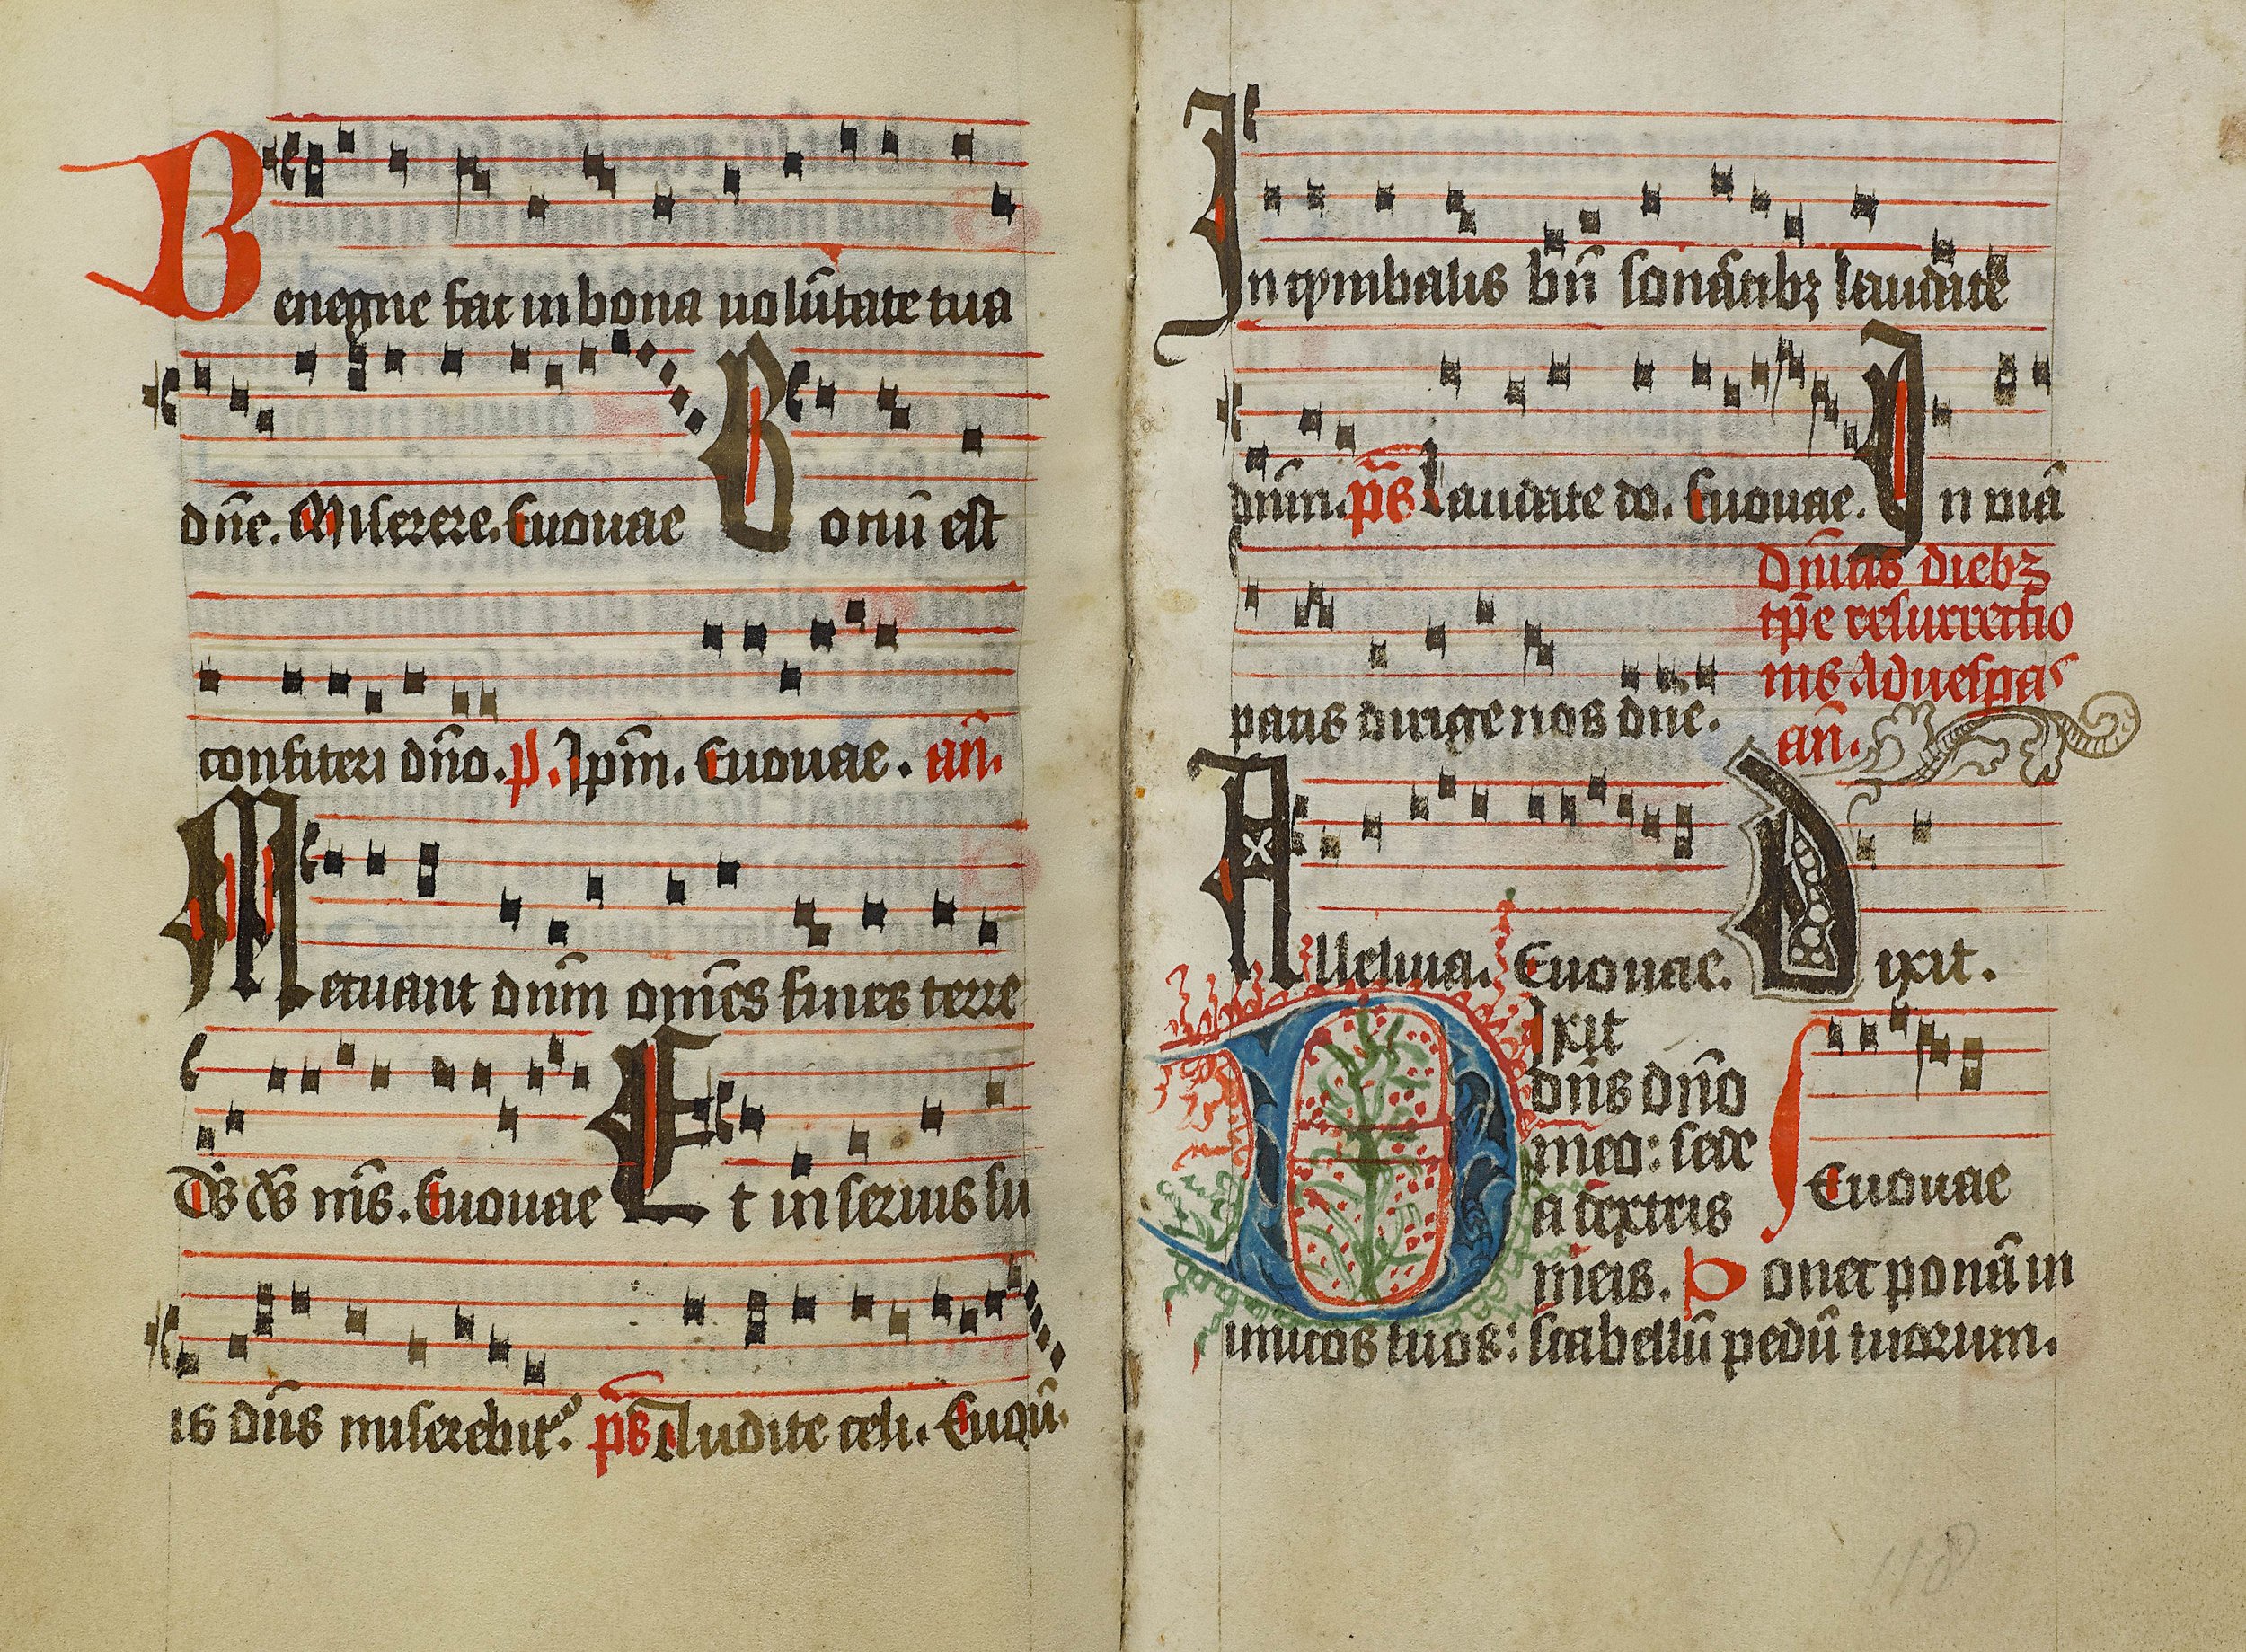 Benegne fac in bona uolūtate tua
dn̄e. Miserere. Euouae Bonū est
confiteri dn̄o. p̄. Ip̄m. Euouae. an̄.
Metuant dnm̄ om̄es fines terre
Ds̄ ds̄ nr̄s. Euouae Et in seruis su
is dn̄s miserebit᷑. ps̄ Audite celi. Euoū.
In cymbalis bn̄ sonātibꝫ laudate
dnm̄. ps̄ Laudate do. Euouae. In uiā
dn̄icis diebꝫ
tp̄e resurrectio
nis Ad uesp̄as
pacis dirige nos dn̄e.
an̄.
Alleluia. Euouae. Dixit.
Dixit
dn̄s dn̄o
meo: sede
a dextris
Euouae
meis. Donec ponā in
imicos tuos: scabellū pedū tuorum.
118